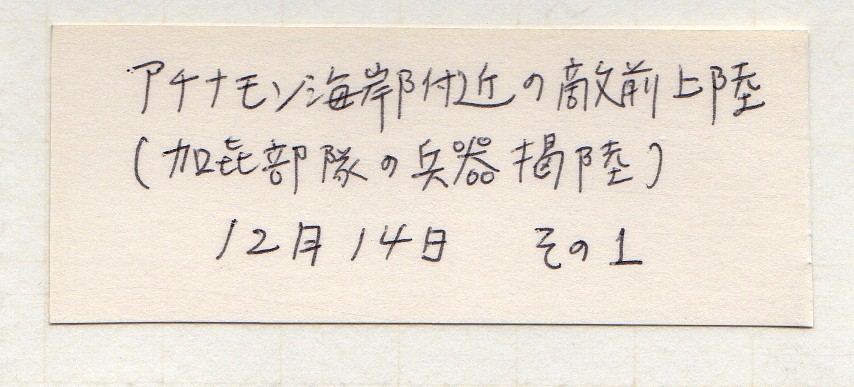 アチナモン海岸附近の敵前上陸
(加㐂部隊の兵器揭陸)
12月14日 その1